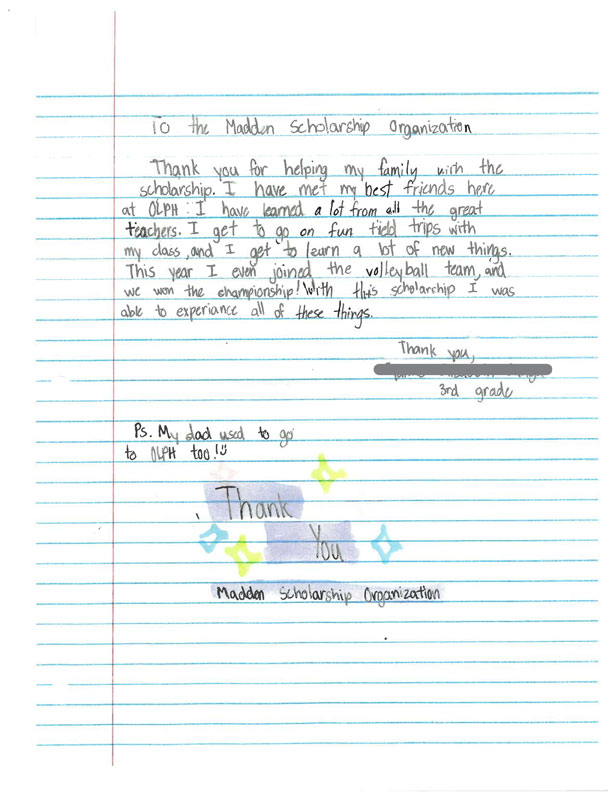 To the Madden Scholarship Organization
Thank you for helping my family with the
scholarship. I have met my best friends here
at OLPH. I have learned a lot from all the great
teachers. I get to go on fun field trips with
my class, and I get to learn a lot of new things.
This year I even joined the volleyball team, and
we won the championship! With this scholarship I was
able to experiance all of these things.
Thank you,
3rd grade
Ps. My dad used to go
to OLPH too!
Thank
You
Madden Scholarship Organization